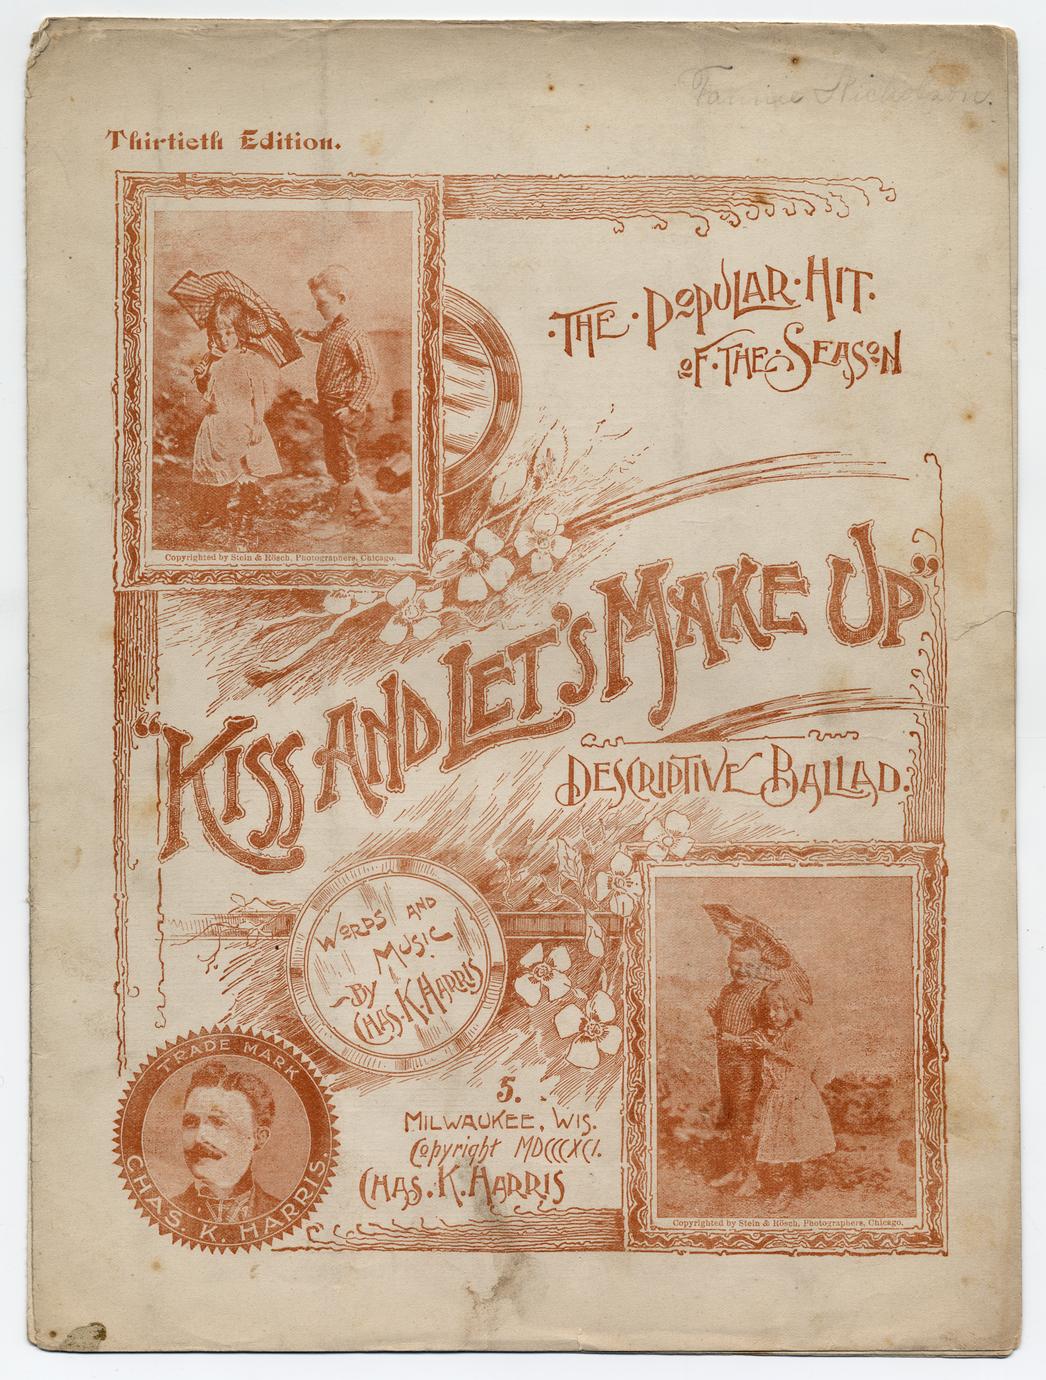 Fannie Nicholson.
Thirtieth Edition.
·THE·POPULAR·HIT.
OF·THE·SEASON
Copyrighted by Stein & Rösch, Photographers, Chicago.
"KISS AND LET'S MAKE UP"
DESCRIPTIVE BALLAD.
WORDS AND
MUSIC
BY
CHAS. K. HARRIS
TRADE MARK
CHAS. K. HARRIS.
5.
MILWAUKEE, WIS.
Copyright MDCCCXCI.
CHAS. K. HARRIS
Copyrighted by Stein & Rösch, Photographers, Chicago.